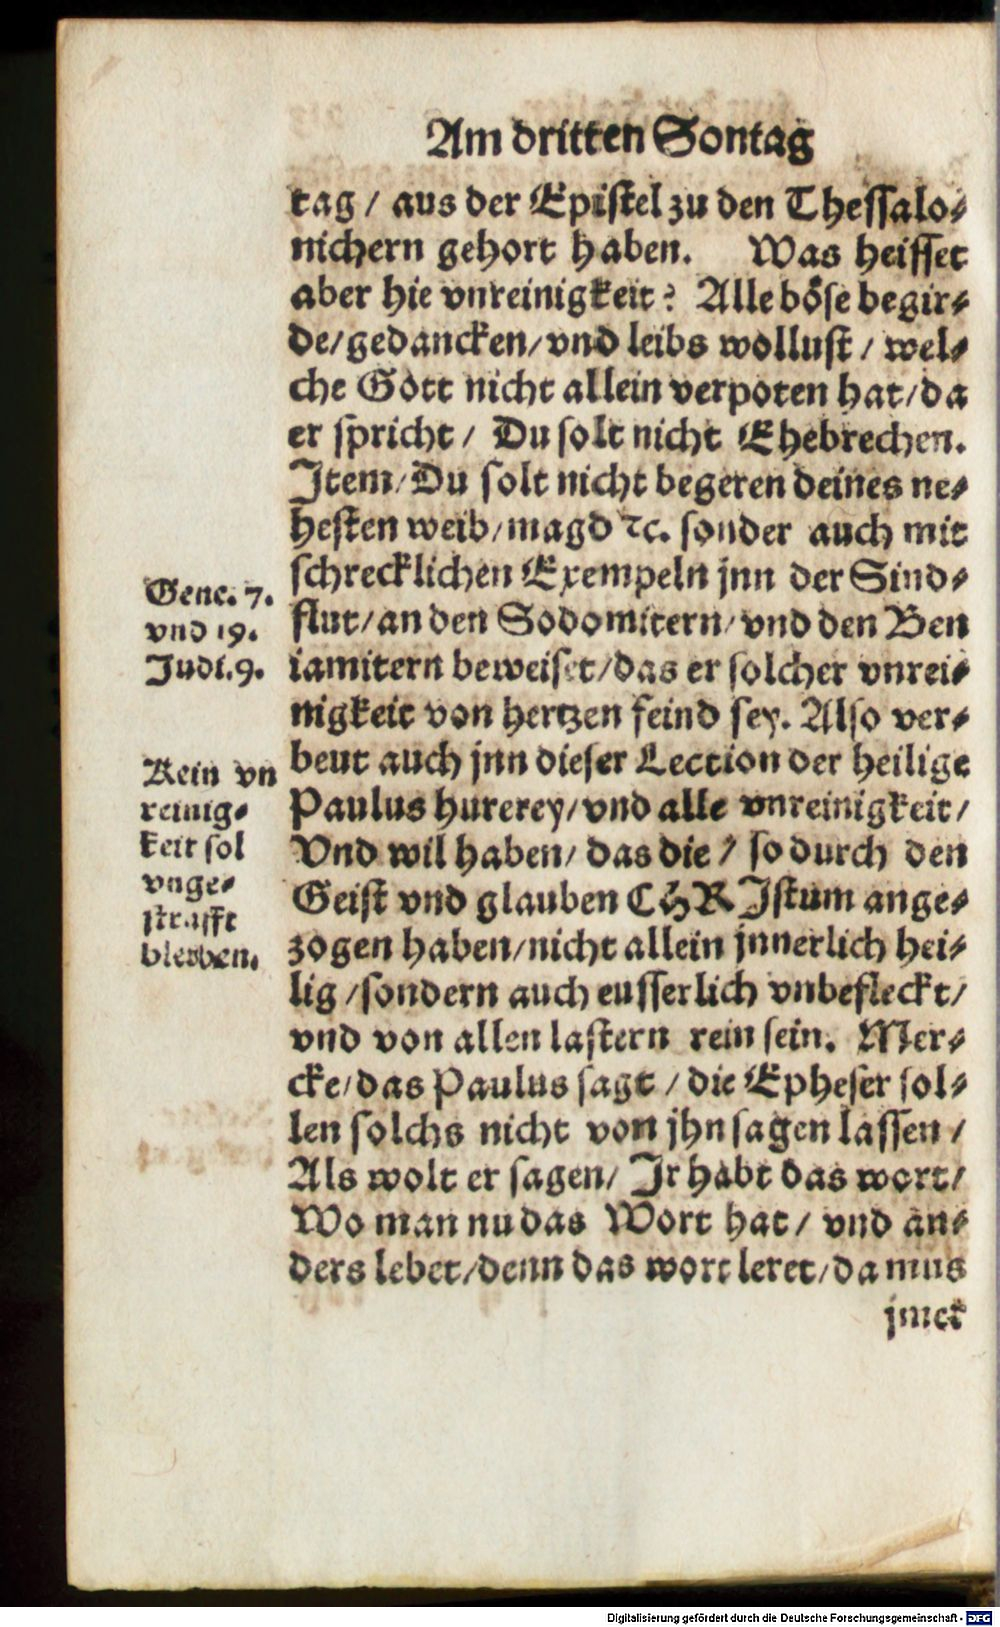 Am dritten Sontag
tag / aus der Epistel zu den Thessalo⸗
nichern gehort haben. Was heisset
aber hie vnreinigkeit? Alle böse begir⸗
de/gedancken/vnd leibs wollust / wel⸗
che Gott nicht allein verpoten hat/da
er spricht / Du solt nicht Ehebrechen.
Item/Du solt nicht begeren deines ne⸗
hesten weib/magd ⁊c. sonder auch mit
schrecklichen Exempeln jnn der Sind⸗
flut/an den Sodomitern/vnd den Ben
iamitern beweiset/das er solcher vnrei⸗
nigkeit von hertzen feind sey. Also ver⸗
beut auch jnn dieser Lection der heilige
Paulus hurerey/vnd alle vnreinigkeit/
Vnd wil haben/ das die / so durch den
Geist vnd glauben CHRIstum ange⸗
zogen haben/nicht allein jnnerlich hei⸗
lig /sondern auch eusserlich vnbefleckt/
vnd von allen lastern rein sein. Mer⸗
cke/das Paulus sagt / die Epheser sol⸗
len solchs nicht von jhn sagen lassen /
Als wolt er sagen/ Ir habt das wort/
Wo man nu das Wort hat / vnd an⸗
ders lebet/denn das wort leret/da mus
Gene. 7.
vnd 19.
Judi. 9.
Kein vn
reinig⸗
keit sol
vnge⸗
strafft
bleiben.
Digitalisierung gefördert durch die Deutsche Forschungsgemeinschaft - DFG